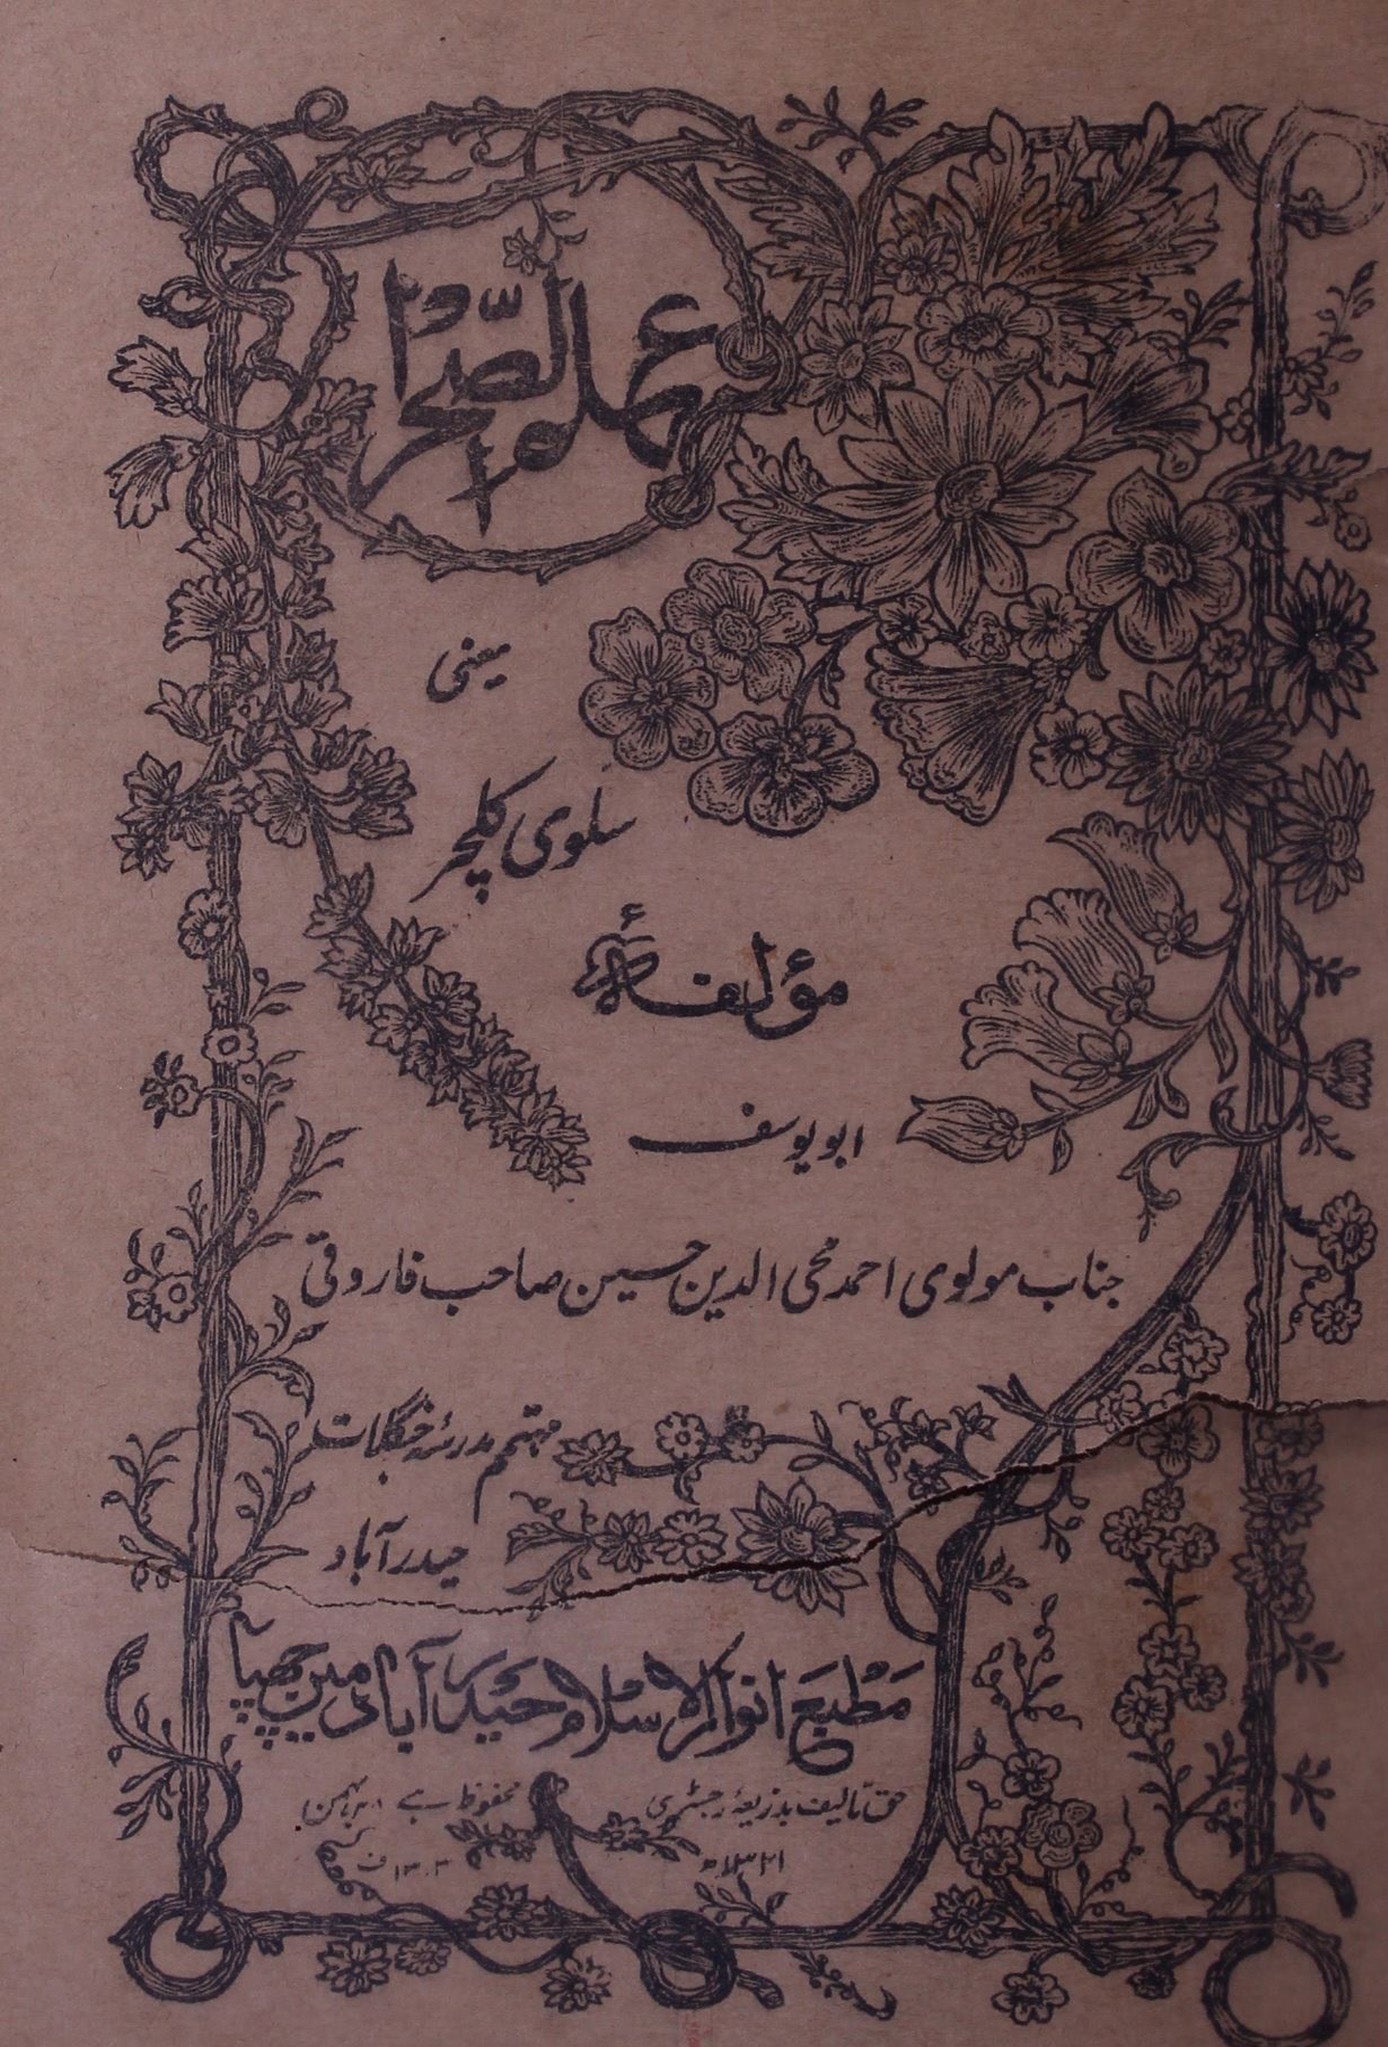 عمدۃ الصحرا
یعنی
سلوی کلچر
مؤلفہٴ
ابو یوسف
جناب مولوی احمد محی الدین حسین صاحب فاروقی
مہتمم مدرسۂ جنگلات
حیدرآباد
مَطبَع انوارالاسلام حیدرآباد میں چھپا
حق تالیف بذریعۂ رجسٹری محفوظ ہے
۱۳۲۱ھ ۱۳۰۲ ف